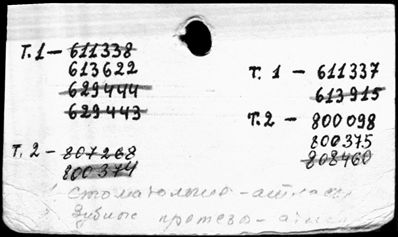 Т. 1 – 611338
613622
629444
629443
Т. 2 – 807268
800374
Т. 1 – 611337
613915
Т. 2 – 800098
800375
808460
Стоматология - атласы
Зубные протезы -